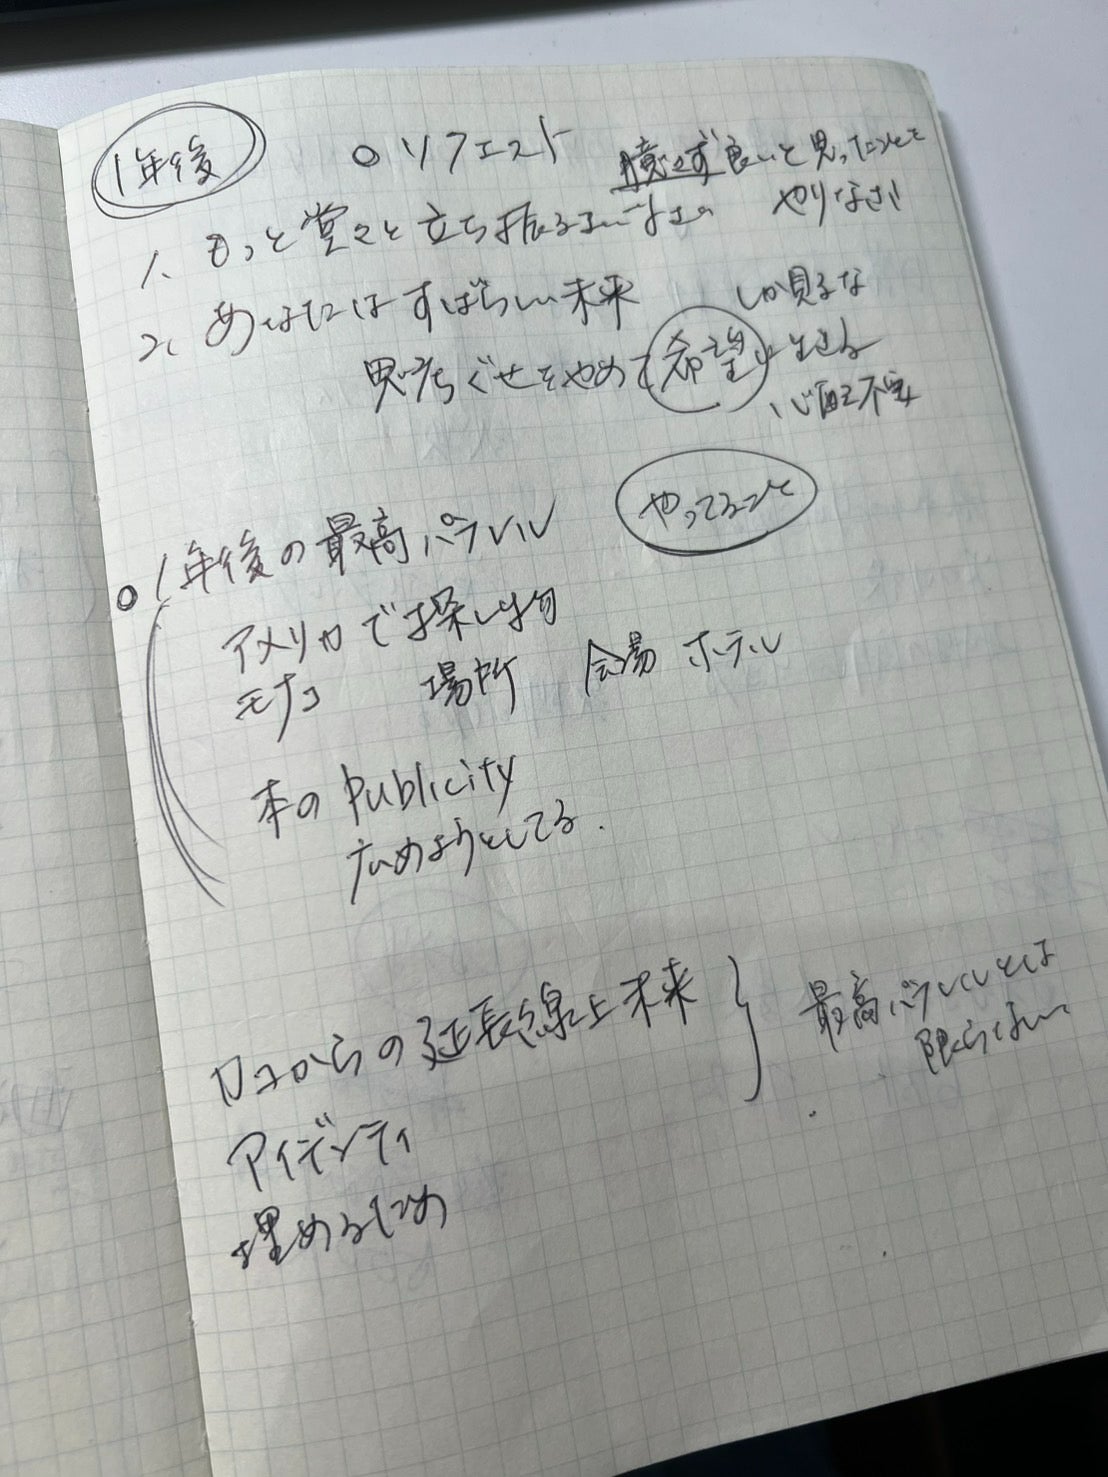 1年後
○リクエスト
臆せず良いと思ったことを
やりなさい
1. もっと堂々と立ち振るまいなさい
2. あなたにはすばらしい未来
しか見るな
思考ぐせをやめて希望に生きる
心配不安
やってること
○1年後の最高パラレル
アメリカで探し物
モナコ 場所 会場 ホテル
本のpublicity
広めようとしてる.
ココからの延長線上未来
最高パラレルとは
限らない
アイデンティ
埋めるため